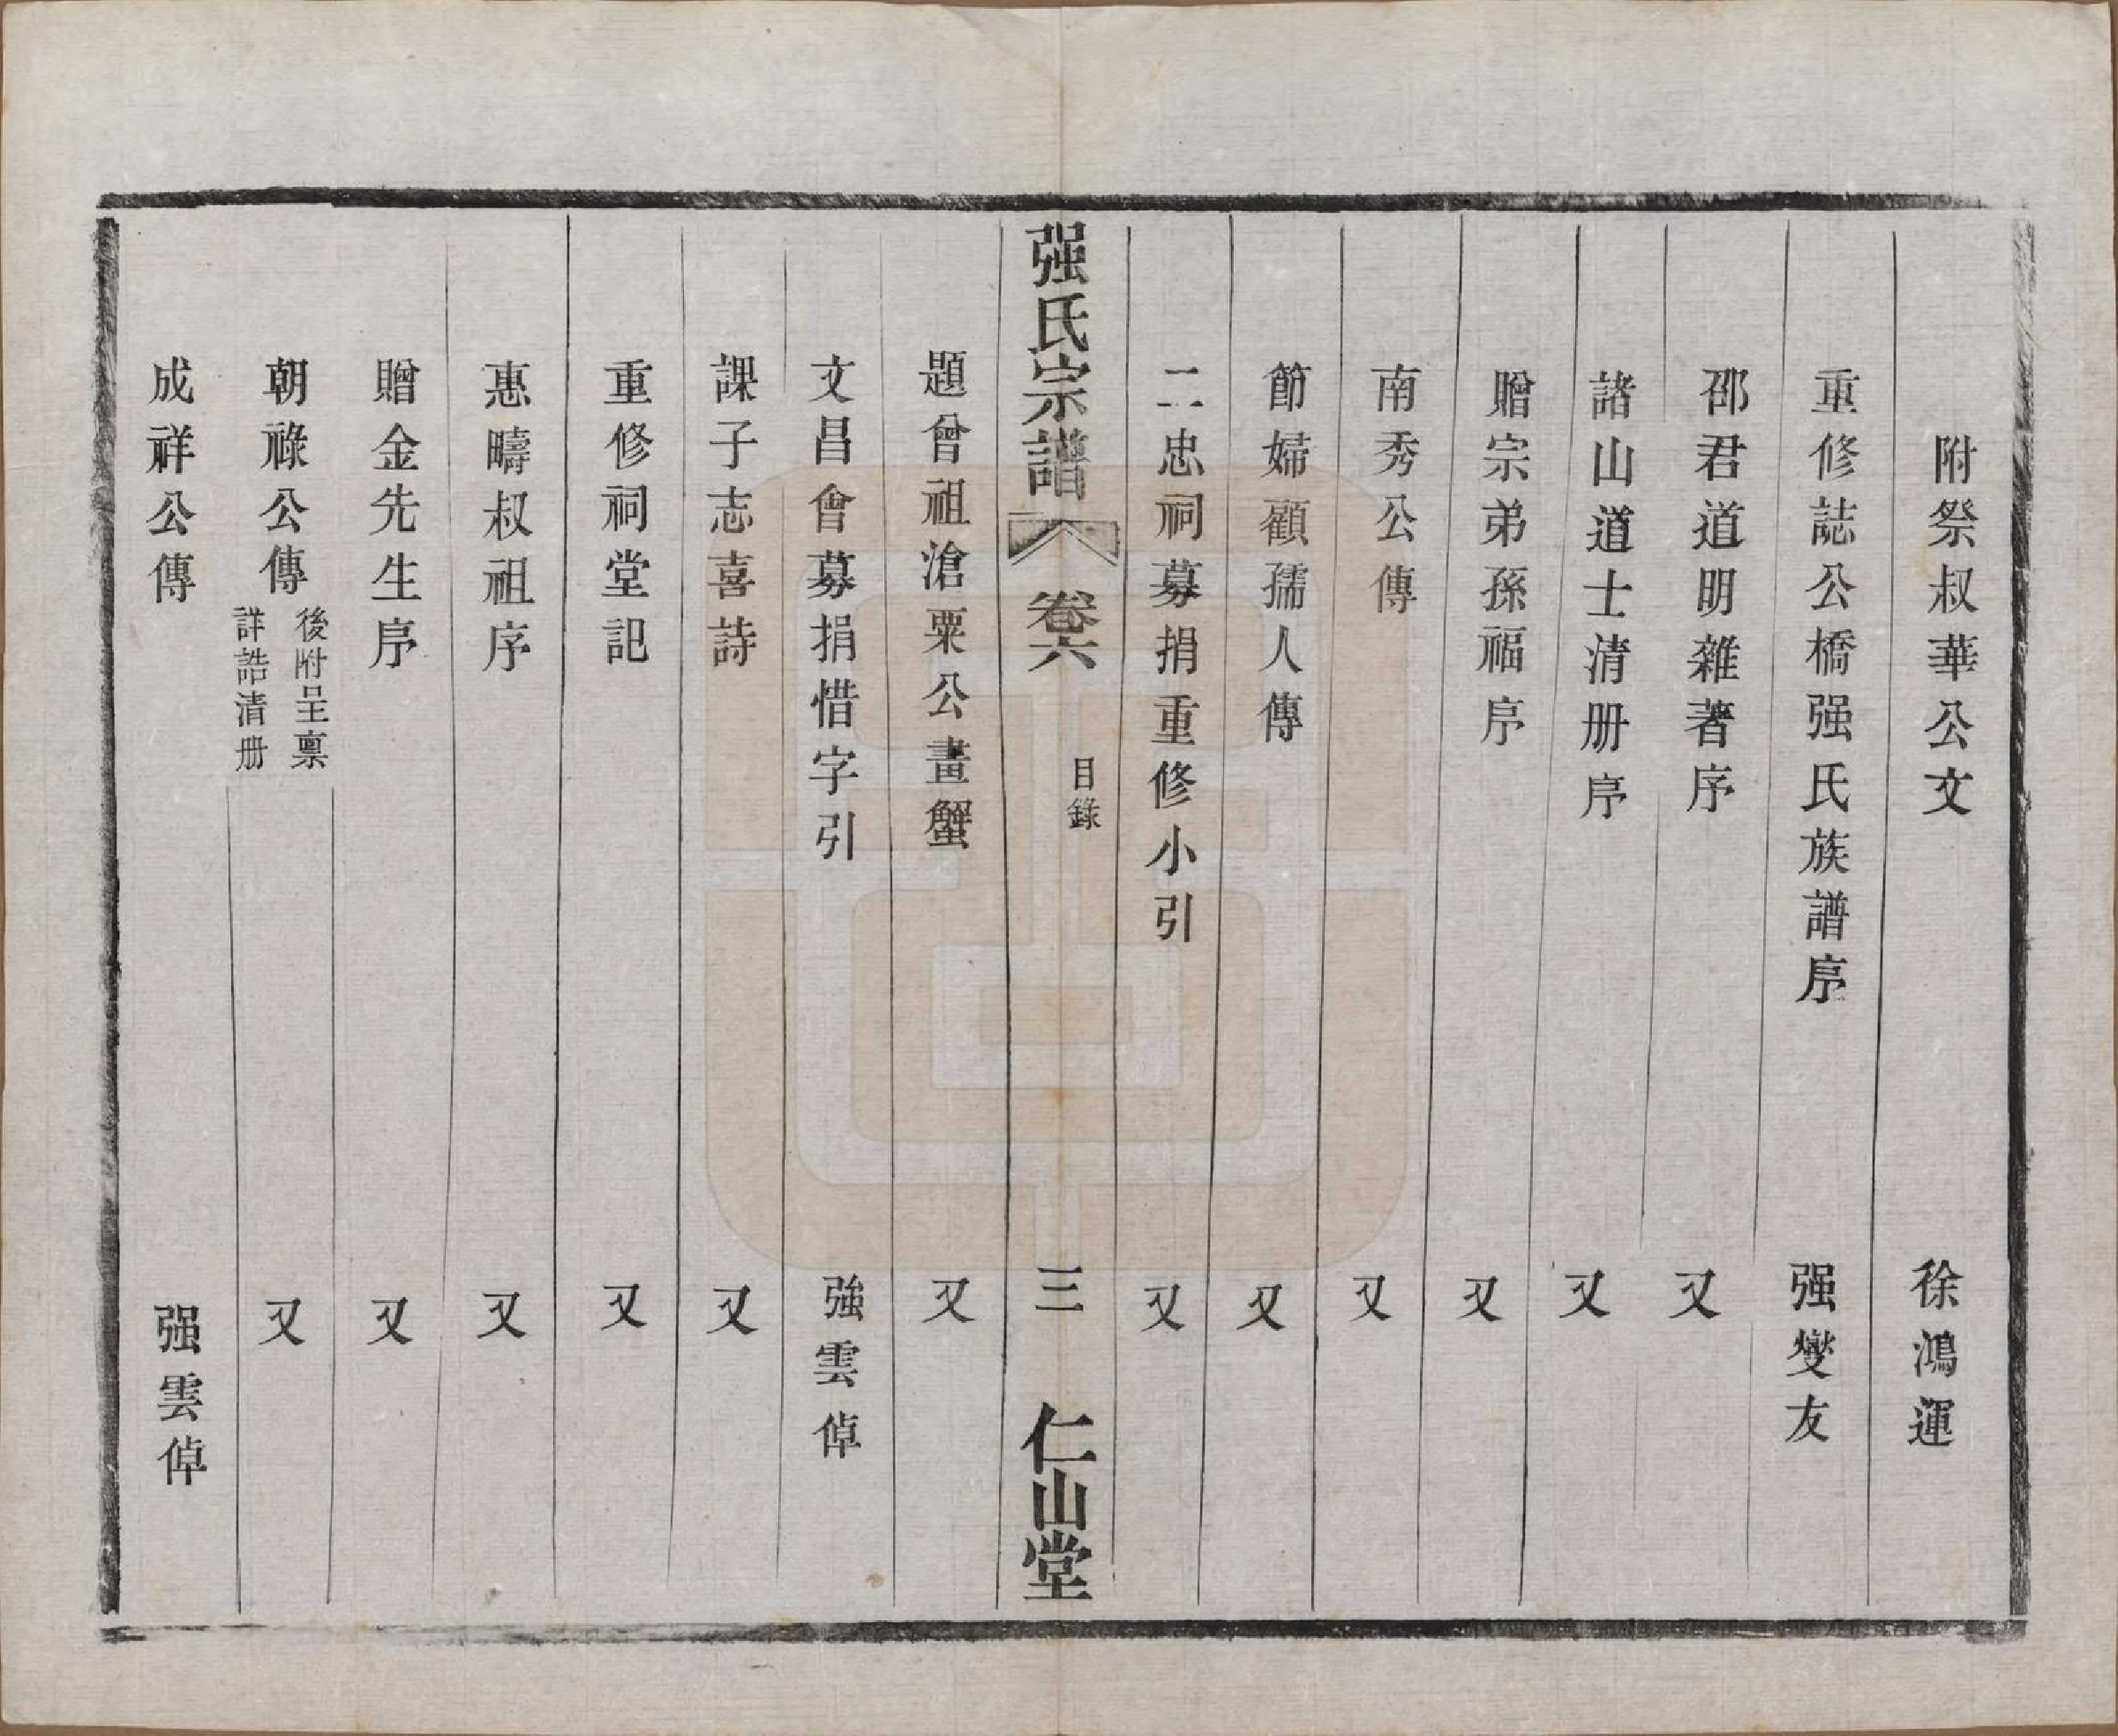 附祭叔華公文 徐鴻運
重修誌公橋强氏族譜序 强燮友
邵君道明雜著序 又
諸山道士清册序 又
贈宗弟孫福序 又
南秀公傳 又
節婦顧孺人傳 又
二忠祠募捐重修小引 又
强氏宗譜 卷六 目錄 三 仁山堂
題曾祖滄粟公畫蟹 又
文昌會募捐惜字引 強雲倬
課子志喜詩 又
重修祠堂記 又
惠疇叔祖序 又
贈金先生序 又
朝祿公傳 後附呈稟 詳誥清册 又
成祥公傳 强雲倬